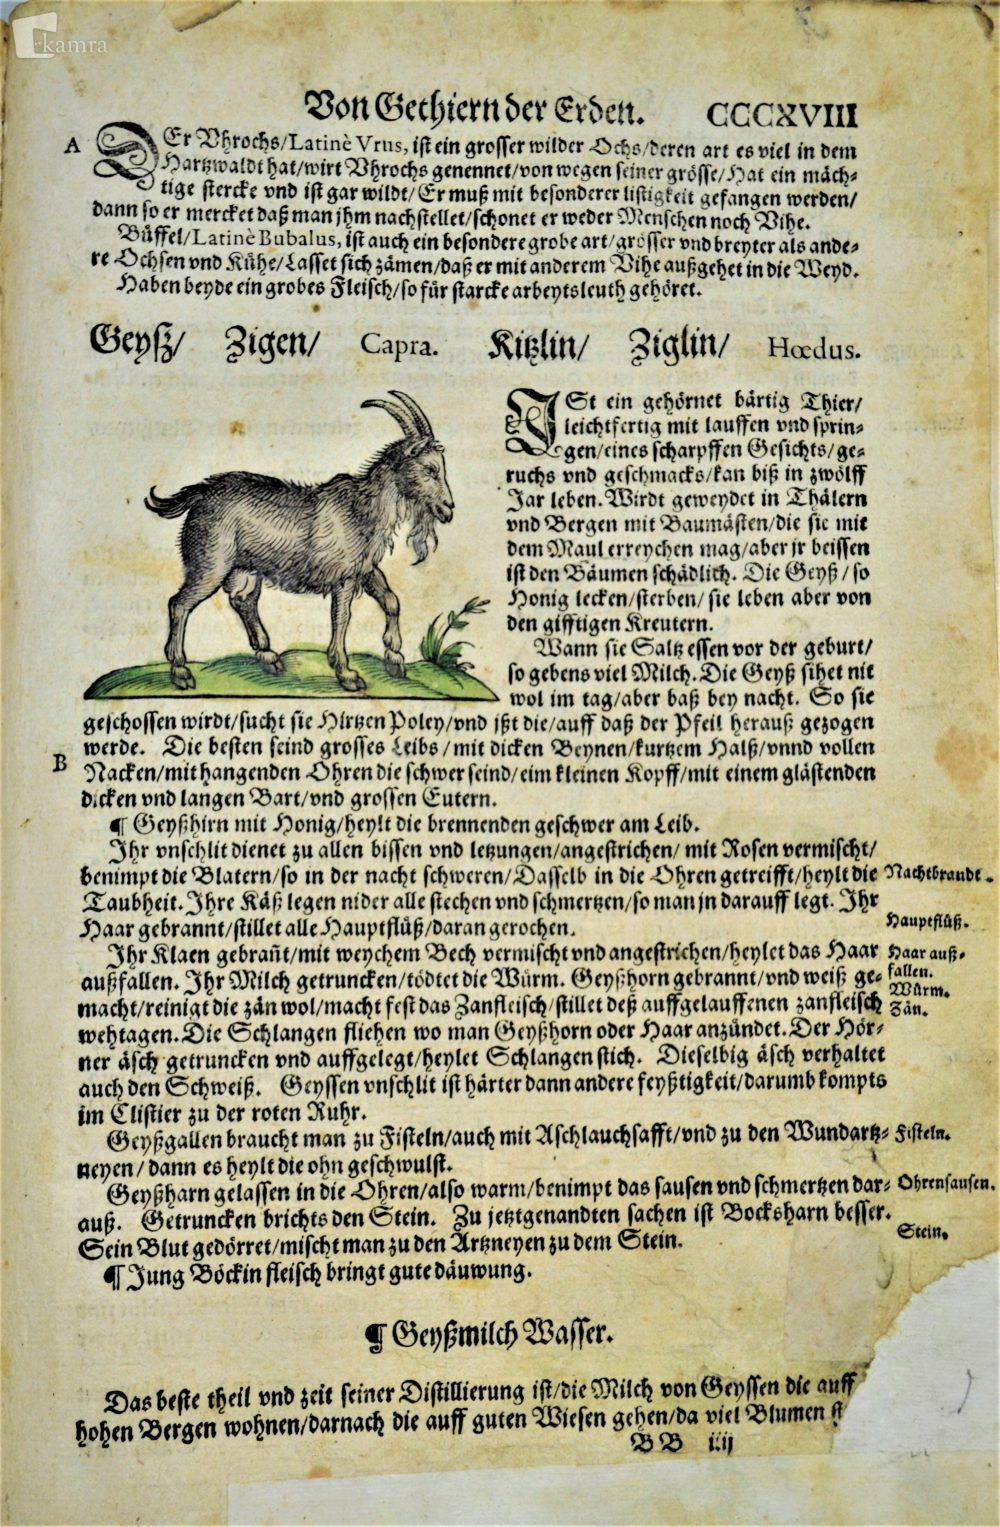 kamra
Von Gethiern der Erden. CCCXVIII
A
DEr Vhrochs/Latinè Vrus, ist ein grosser wilder Ochs/deren art es viel in dem
Hartzwaldt hat/wirt Vhrochs genennet/von wegen seiner grösse/Hat ein mäch-
tige stercke vnd ist gar wildt/Er muß mit besonderer listigkeit gefangen werden/
dann so er mercket daß man jhm nachstellet/schonet er weder Menschen noch Vihe.
Büffel/Latinè Bubalus, ist auch ein besondere grobe art/grösser vnd breyter als ande-
re Ochsen vnd Kühe/Lasset sich zämen/daß er mit anderem Vihe außgehet in die Weyd.
Haben beyde ein grobes Fleisch/so für starcke arbeytsleuth gehöret.
Geysz/ Zigen/ Capra. Kitzlin/ Ziglin/ Hœdus.
ISt ein gehörnet bärtig Thier/
leichtfertig mit lauffen vnd sprin-
gen/eines scharpffen Gesichts/ge-
ruchs vnd geschmacks/kan biß in zwölff
Jar leben. Wirdt geweydet in Thälern
vnd Bergen mit Baumästen/die sie mit
dem Maul erreychen mag/aber jr beissen
ist den Bäumen schädlich. Die Geyß/so
Honig lecken/sterben/sie leben aber von
den gifftigen Kreutern.
Wann sie Saltz essen vor der geburt/
so gebens viel Milch. Die Geyß sihet nit
wol im tag/aber baß bey nacht. So sie
geschossen wirdt/sucht sie Hirtzen Poley/vnd ißt die/auff daß der Pfeil herauß gezogen
werde. Die besten seind grosses Leibs/mit dicken Beynen/kurtzem Halß/vnnd vollen
B
Nacken/mit hangenden Ohren die schwer seind/eim kleinen Kopff/mit einem glästenden
dicken vnd langen Bart/vnd grossen Eutern.
¶ Geyßhirn mit Honig/heylt die brennenden geschwer am Leib.
Jhr vnschlit dienet zu allen bissen vnd letzungen/angestrichen/mit Rosen vermischt/
benimpt die Blatern/so in der nacht schweren/Dasselb in die Ohren getreifft/heylt die Nachtbrandt.
Taubheit. Jhre Käß legen nider alle stechen vnd schmertzen/so man jn darauff legt. Jhr
Haar gebrannt/stillet alle Hauptflüß/daran gerochen. Hauptflüß.
Jhr Klaen gebrañt/mit weychem Bech vermischt vnd angestrichen/heylet das Haar Haar auß-
außfallen. Jhr Milch getruncken/tödtet die Würm. Geyßhorn gebrannt/vnd weiß ge- fallen.
Würm.
macht/reinigt die zän wol/macht fest das Zanfleisch/stillet deß auffgelauffenen zanfleisch Zän.
wehtagen. Die Schlangen fliehen wo man Geyßhorn oder Haar anzündet. Der Hör-
ner äsch getruncken vnd auffgelegt/heylet Schlangen stich. Dieselbig äsch verhaltet
auch den Schweiß. Geyssen vnschlit ist härter dann andere feyßtigkeit/darumb kompts
im Clistier zu der roten Ruhr.
Geyßgallen braucht man zu Fisteln/auch mit Aschlauchsafft/vnd zu den Wundartz- Fisteln.
neyen/dann es heylt die ohn geschwulst.
Geyßharn gelassen in die Ohren/also warm/benimpt das sausen vnd schmertzen dar- Ohrensausen.
auß. Getruncken brichts den Stein. Zu jetztgenandten sachen ist Bocksharn besser.
Stein.
Sein Blut gedörret/mischt man zu den Artzneyen zu dem Stein.
¶ Jung Böckin fleisch bringt gute däuwung.
¶ Geyßmilch Wasser.
Das beste theil vnd zeit seiner Distillierung ist/die Milch von Geyssen die auff
hohen Bergen wohnen/darnach die auff guten Wiesen gehen/da viel Blumen
BB iiij